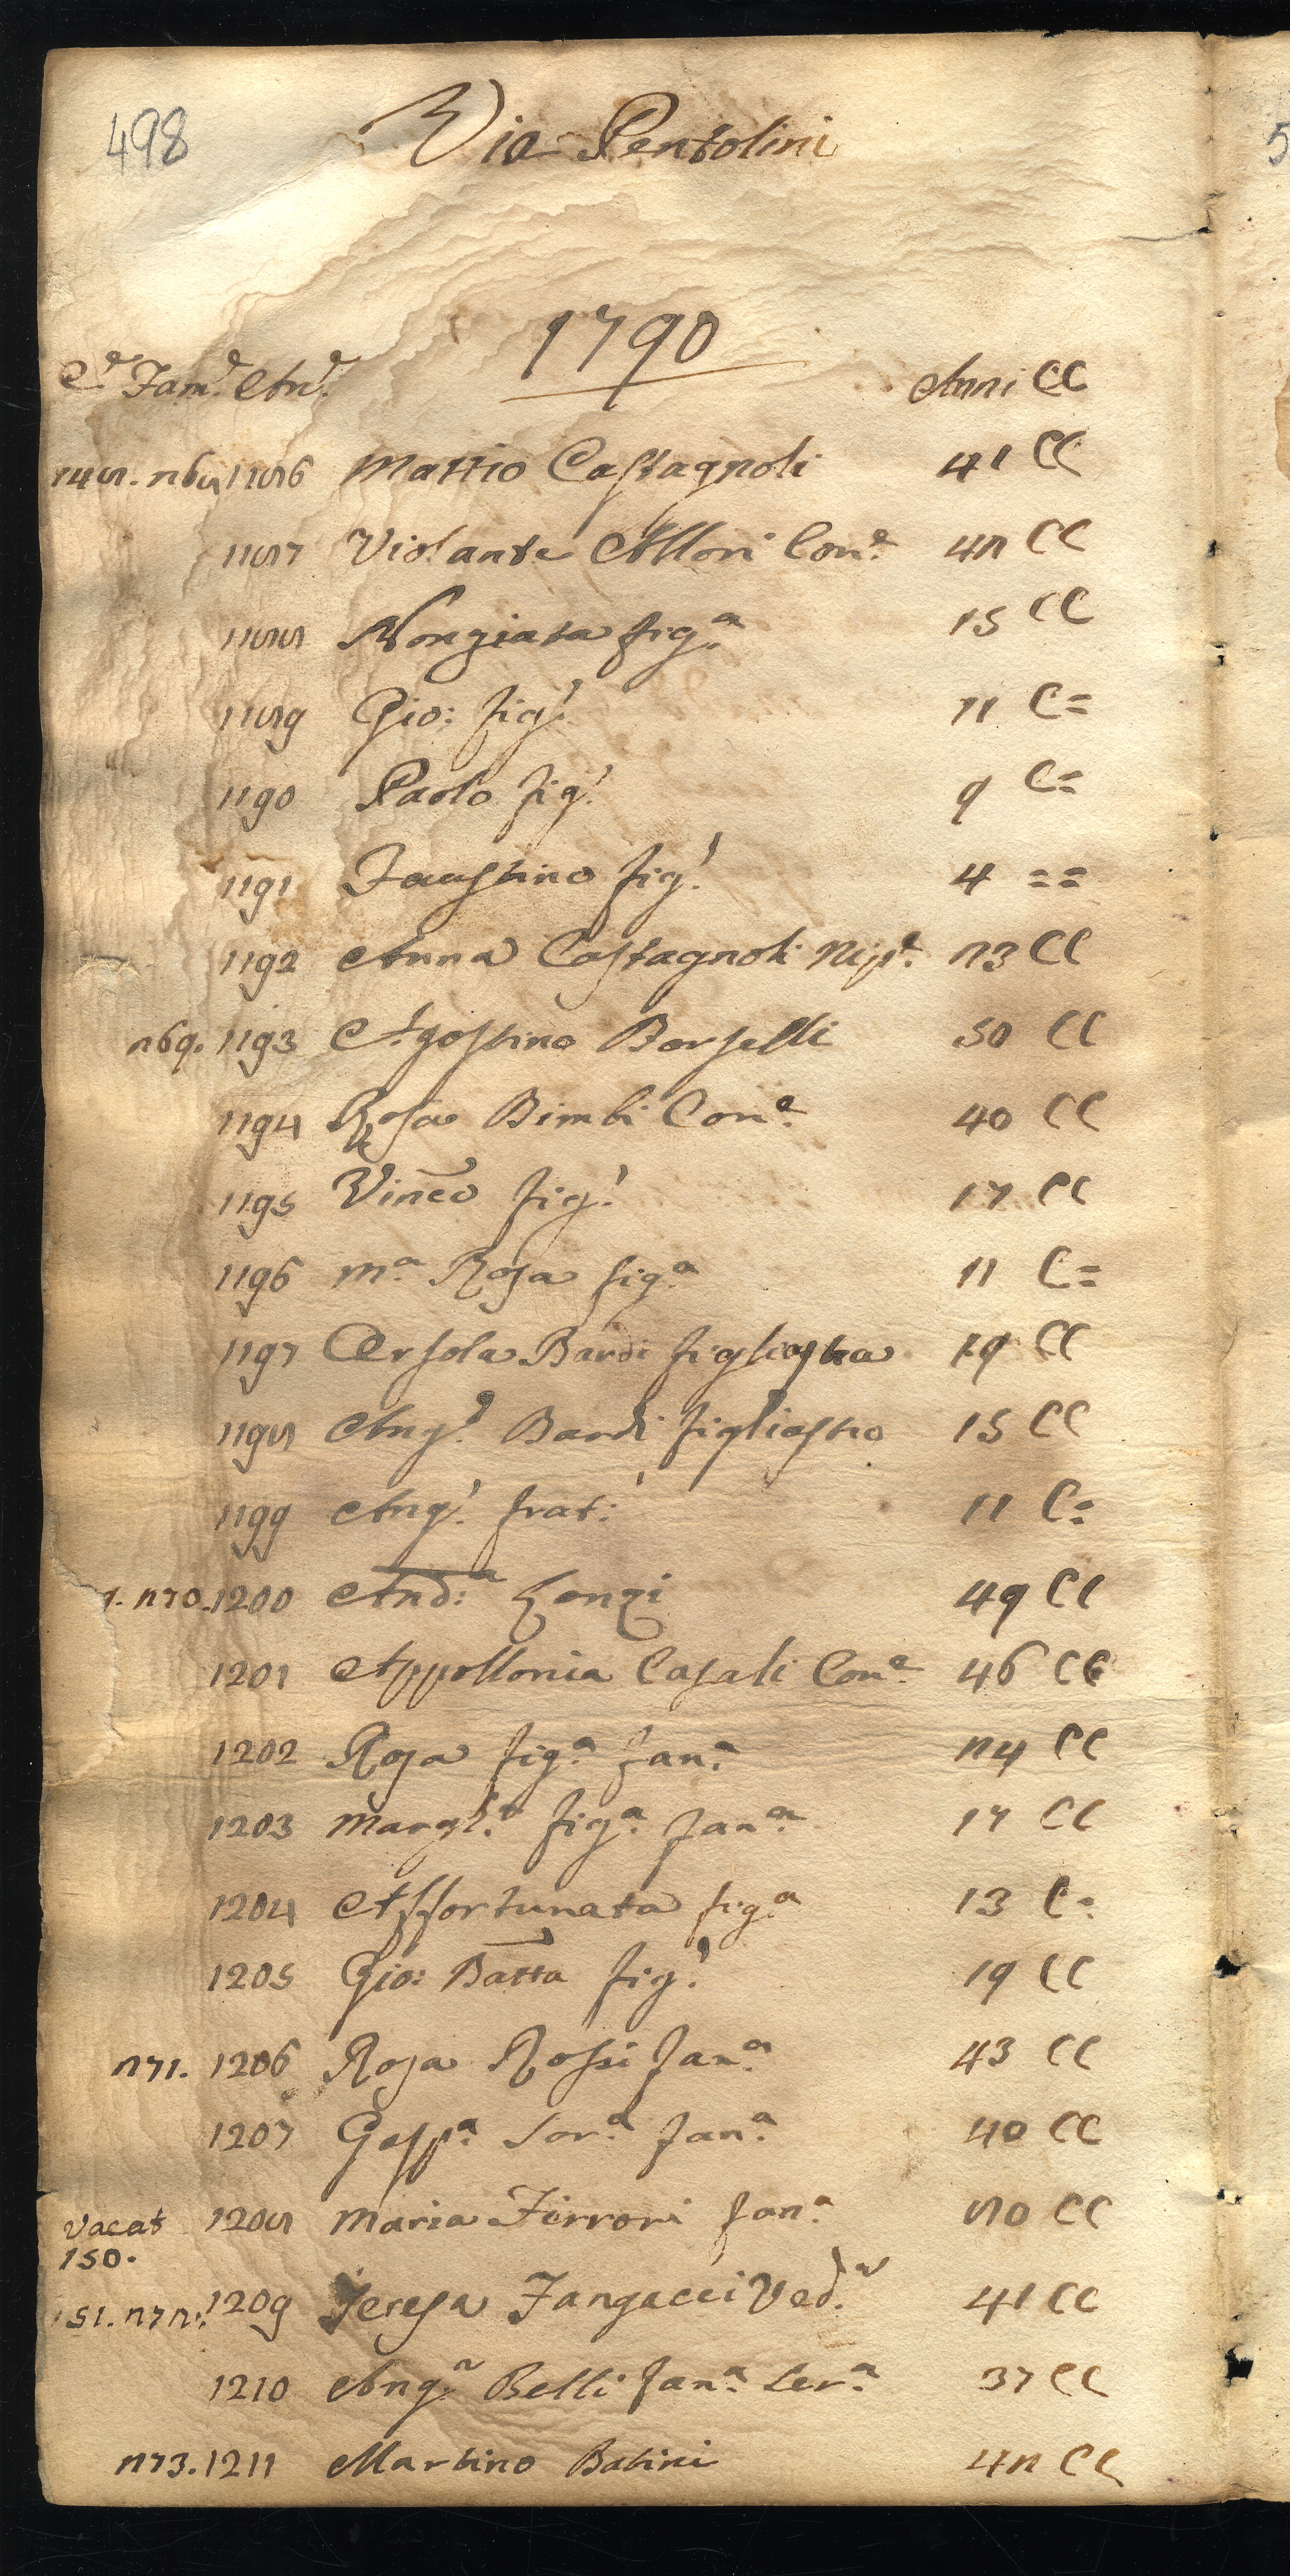 498
Via Pentolini
1790
Ce. Fame. Ane. Anni CC
148. 268 1186 Mattio Castagnoli 41 CC
1187 Violante Allori Cone. 42 CC
1188 Nonziata figa. 15 CC
1189 Gio: figl. 11 C=
1190 Paolo figl. 9 C=
1191 Faustino figl. 4 ==
1192 Anna Castagnoli Nipe. 23 CC
269. 1193 Agostino Borselli 50 CC
1194 Rosa Bimbi Cone. 40 CC
1195 Vinco figl. 17 CC
1196 Ma. Rosa figa. 11 C=
1197 Orsola Bardi figliastra 19 CC
1198 Ango. Bardi figliastro 15 CC
1199 Angl. frat: 11 C=
9. 270. 1200 And:a Zonzi 49 CC
1201 Appollonia Casali Cone. 46 CC
1202 Rosa figa. fana. 24 CC
1203 Margha. figa. fana. 17 CC
1204 Affortunata figa. 13 C=
1205 Gio: Batta figl. 19 CC
271. 1206 Rosa Rossi fana. 43 CC
1207 Gaspa. Sora. fana. 40 CC
vacat 1208 Maria Ferrori fana. 80 CC
150.
151. 272. 1209 Teresa Fangacci Veda. 41 CC
1210 Anga. Belli fana. Sera. 37 CC
273. 1211 Martino Batini 42 CC